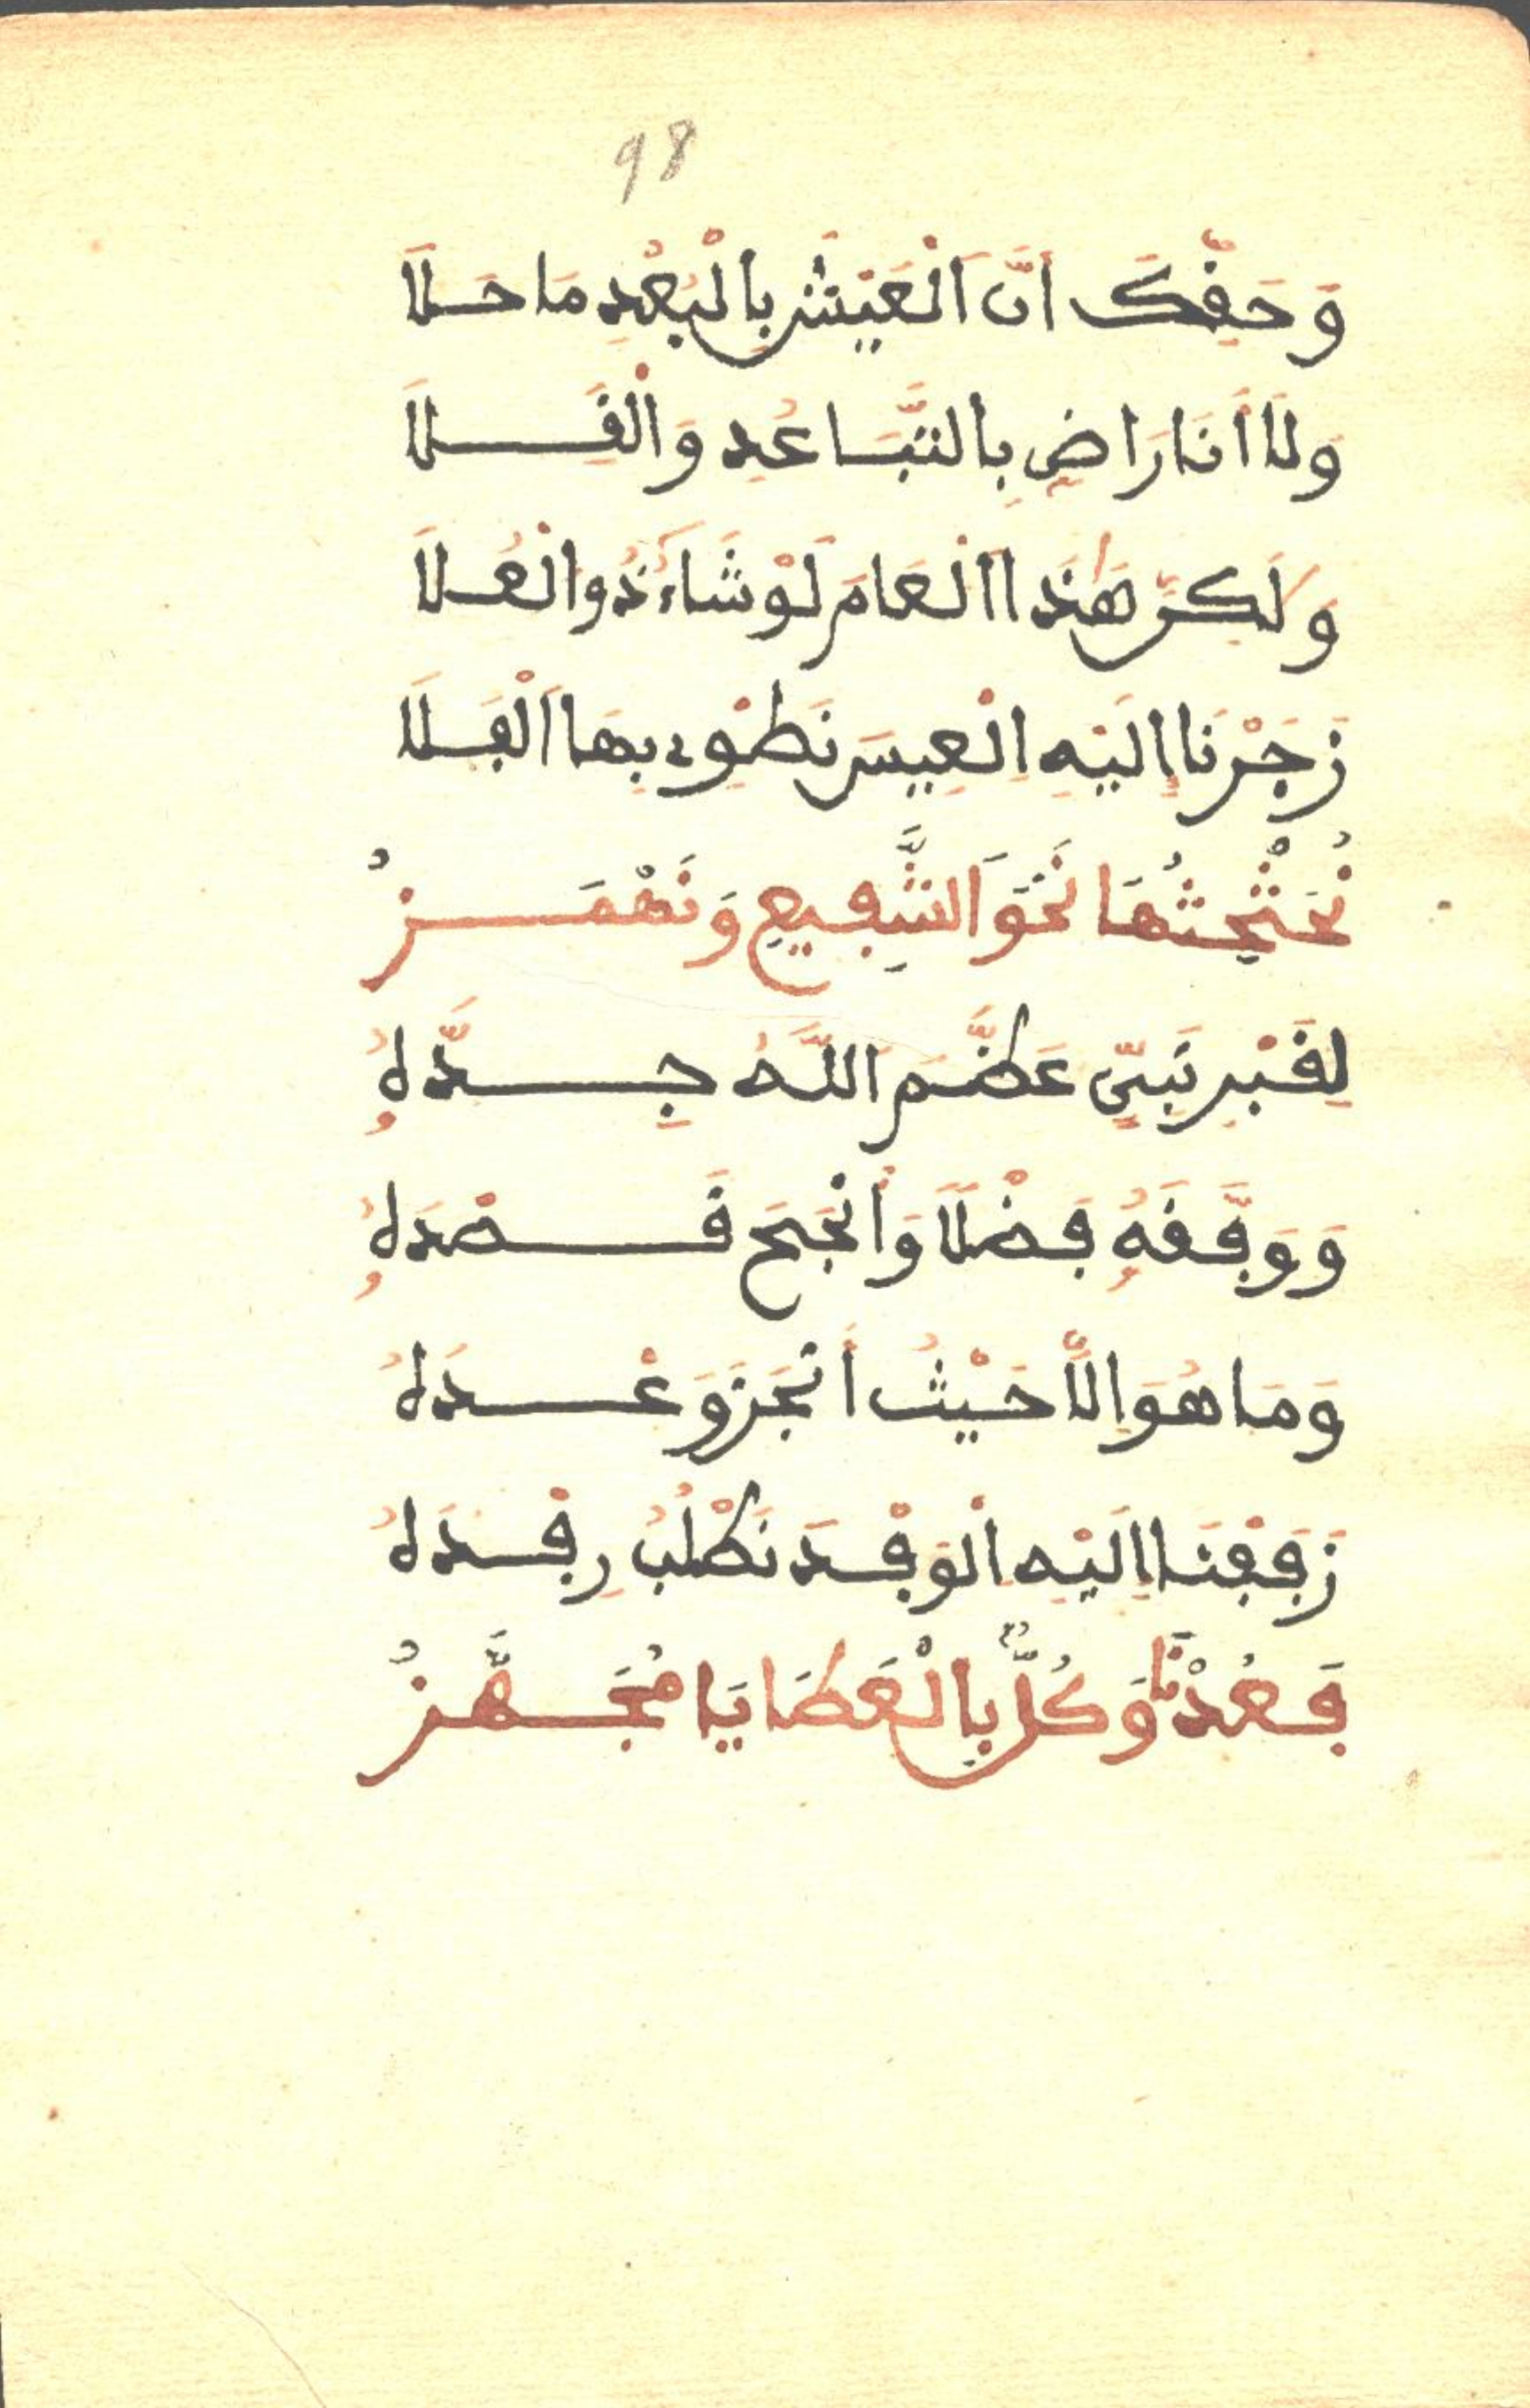 98
وَحَقِّكَ اَنَّ اَلْعَيْشَ بِالْبُعْدِ مَا حَلَا
وَلَا أَنَا رَاضٍ بِالتَّبَاعُدِ وَالْقَلَا
وَلَكِنَّ هَذَا الْعَامَ لَوْ شَاءَ ذُو الْعُلَا
زَجَرْنَا إِلَيْهِ الْعِيسَ نَطْوِي بِهَا الْفَلَا
نُحَثْحِثُهَا نَحْوَ الشَّفِيعِ وَنَهْمَزُ
لِقَبْرِ نَبِيٍّ عَظَّمَ اللَّهُ جِدَّهُ
وَوَفَّقَهُ فَضْلًا وَأَنْجَحَ قَصْدَهُ
وَمَا هُوَ إِلَّا حَيْثُ أَنْجَزَ وَعْدَهُ
زَفَفْنَا إِلَيْهِ الْوَفْدَ نَطْلُبُ رِفْدَهُ
فَعُدْنَا وَكُلٌّ بِالْعَطَايَا مُجَهَّزُ